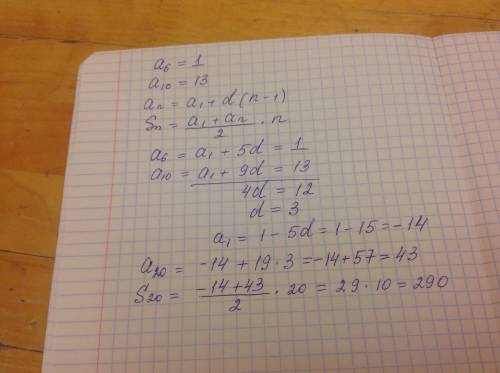 a₆ = 1
a₁₀ = 13
aₙ = a₁ + d (n-1)
Sₙ = (a₁ + aₙ)/2 · n
a₆ = a₁ + 5d = 1
a₁₀ = a₁ + 9d = 13
4d = 12
d = 3
a₁ = 1 - 5d = 1 - 15 = -14
a₂₀ = -14 + 19 · 3 = -14 + 57 = 43
S₂₀ = (-14 + 43)/2 · 20 = 29 · 10 = 290